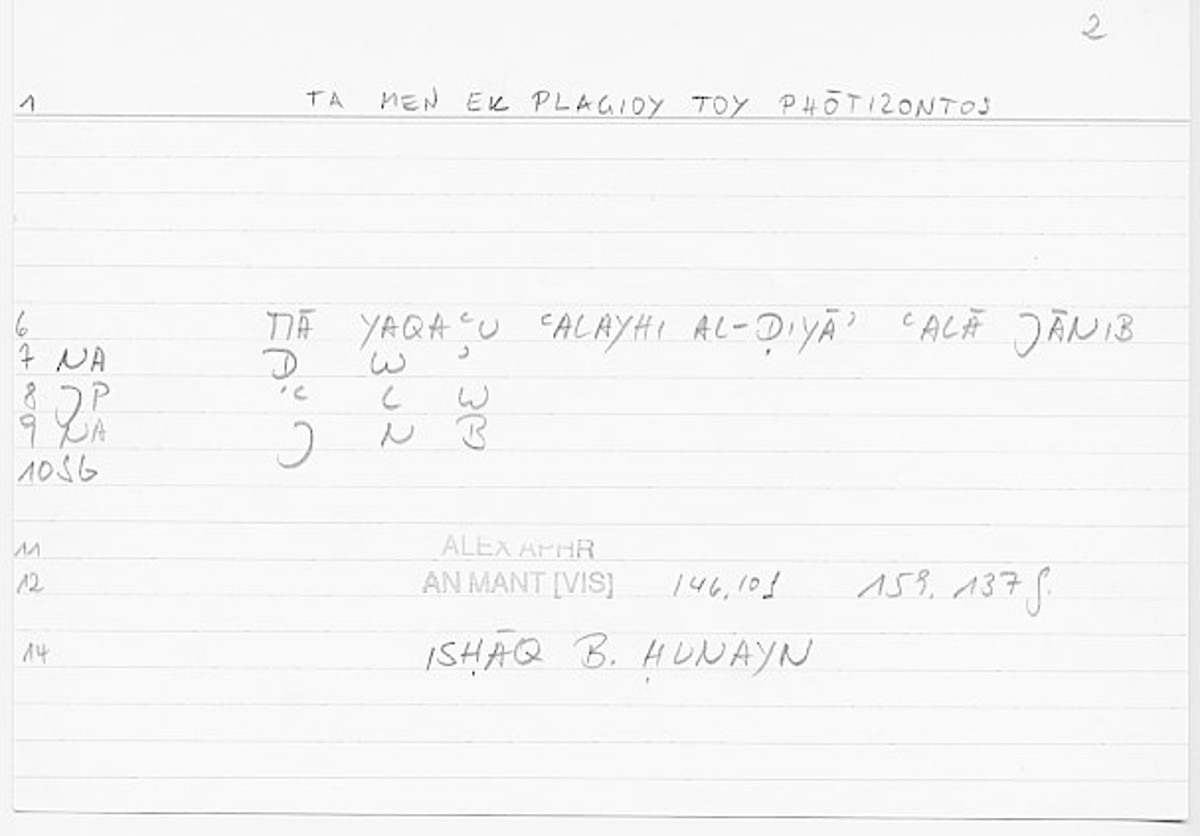 2
1 TA MEN EK PLAGIOY TOY PHŌTIZONTOS
6 MĀ YAQAʿU ʿALAYHI AL-ḌIYĀʾ ʿALĀ JĀNIB
7 NA Ḍ W ʾ
8 JP ʿ L W
9 NA J N B
10 SG
11 ALEX APHR
12 AN MANT [VIS] 146,10f 159. 137 f.
14 ISḤĀQ B. ḤUNAYN